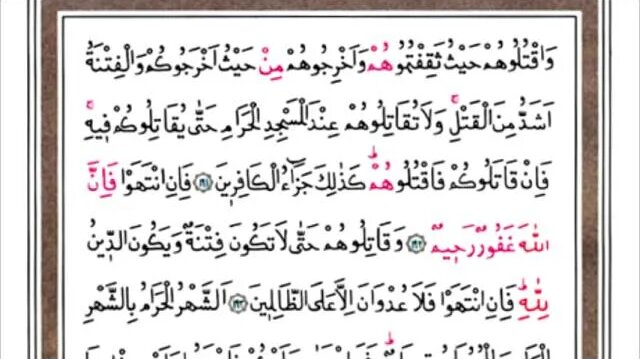 وَاقْتُلُوهُمْ حَيْثُ ثَقِفْتُمُوهُمْ وَاَخْرِجُوهُمْ مِنْ حَيْثُ اَخْرَجُوكُمْ وَالْفِتْنَةُ
اَشَدُّ مِنَ الْقَتْلِۚ وَلَا تُقَاتِلُوهُمْ عِنْدَ الْمَسْجِدِ الْحَرَامِ حَتّٰى يُقَاتِلُوكُمْ فِيهِۚ
فَاِنْ قَاتَلُوكُمْ فَاقْتُلُوهُمْۜ كَذٰلِكَ جَزَٓاءُ الْكَافِرٖينَ ﴿١٩١﴾ فَاِنِ انْتَهَوْا فَاِنَّ
اللّٰهَ غَفُورٌ رَحٖيمٌ ﴿١٩٢﴾ وَقَاتِلُوهُمْ حَتّٰى لَا تَكُونَ فِتْنَةٌ وَيَكُونَ الدّٖينُ
لِلّٰهِۜ فَاِنِ انْتَهَوْا فَلَا عُدْوَانَ اِلَّا عَلَى الظَّالِمٖينَ ﴿١٩٣﴾ اَلشَّهْرُ الْحَرَامُ بِالشَّهْرِ